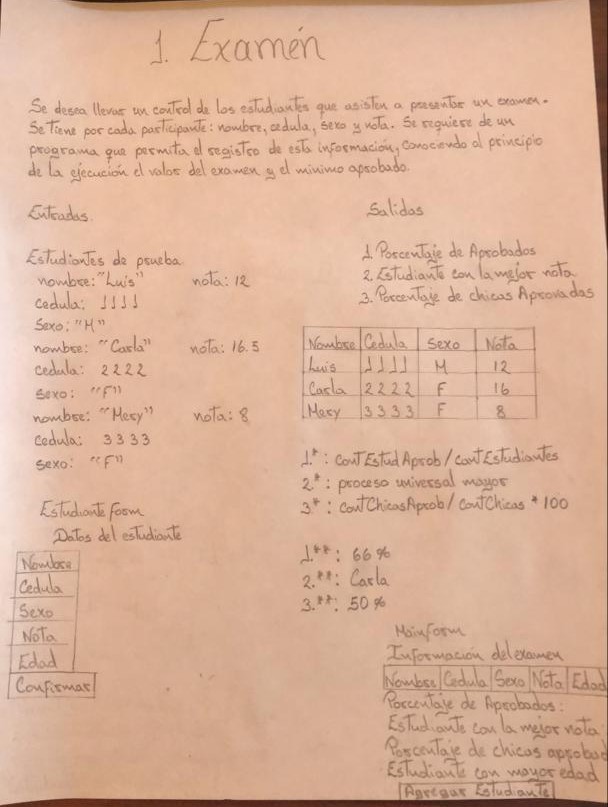 1. Examén
Se desea llevar un control de los estudiantes que asisten a presentar un examen.
Se tiene por cada participante: nombre, cedula, sexo y nota. Se requiere de un
programa que permita el registro de esta información, conociendo al principio
de la ejecución el valor del examen y el minimo aprobado.
Entradas.
Estudiantes de prueba
nombre: "Luis" nota: 12
cedula: 1111
Sexo: "M"
nombre: "Carla" nota: 16.5
cedula: 2222
sexo: "F"
nombre: "Mery" nota: 8
cedula: 3333
sexo: "F"
Estudiante form
Datos del estudiante
Nombre
Cedula
Sexo
Nota
Edad
Confirmar
Salidas
1. Porcentaje de Aprobados
2. Estudiante con la mejor nota
3. Porcentaje de chicas Aprovadas
Nombre Cedula Sexo Nota
Luis 1111 M 12
Carla 2222 F 16
Mery 3333 F 8
1.*: contEstudAprob/contEstudiantes
2.*: proceso universal mayor
3.*: contChicasAprob/contChicas * 100
1.**: 66%
2.**: Carla
3.**: 50%
Mainform
Información del examen
Nombre Cedula Sexo Nota Edad
Porcentaje de Aprobados:
Estudiante con la mejor nota
Porcentaje de chicas aprobad
Estudiante con mayor edad
Agregar Estudiante